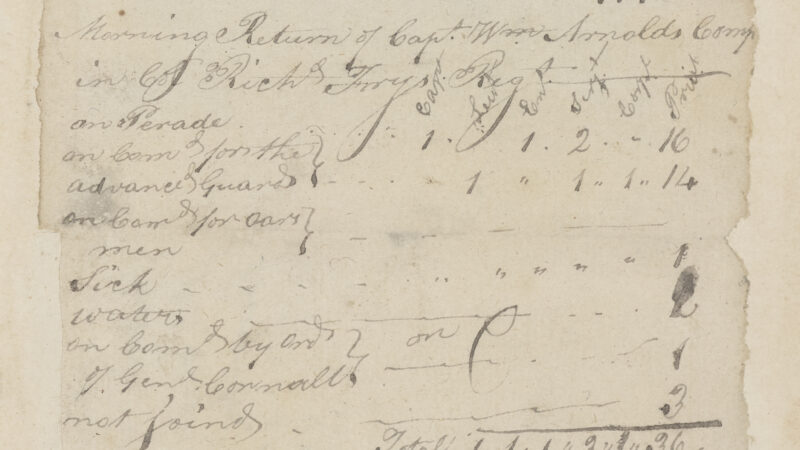 Morning Return of Capt. Wm Arnolds Comp
in Col Richd Frys Regt.
Capt Lieu En Serjt Corpl Privt
on Perade 1 1 2 16
on Comd for the
advanced Guard 1 " 1 " 1 " 14
on Comd for oars
men 1
Sick " " " " "
waters 2
on Comd by Ord on 1
of Genl Cornall
not Joind 3
Total 1 1 1 3 36